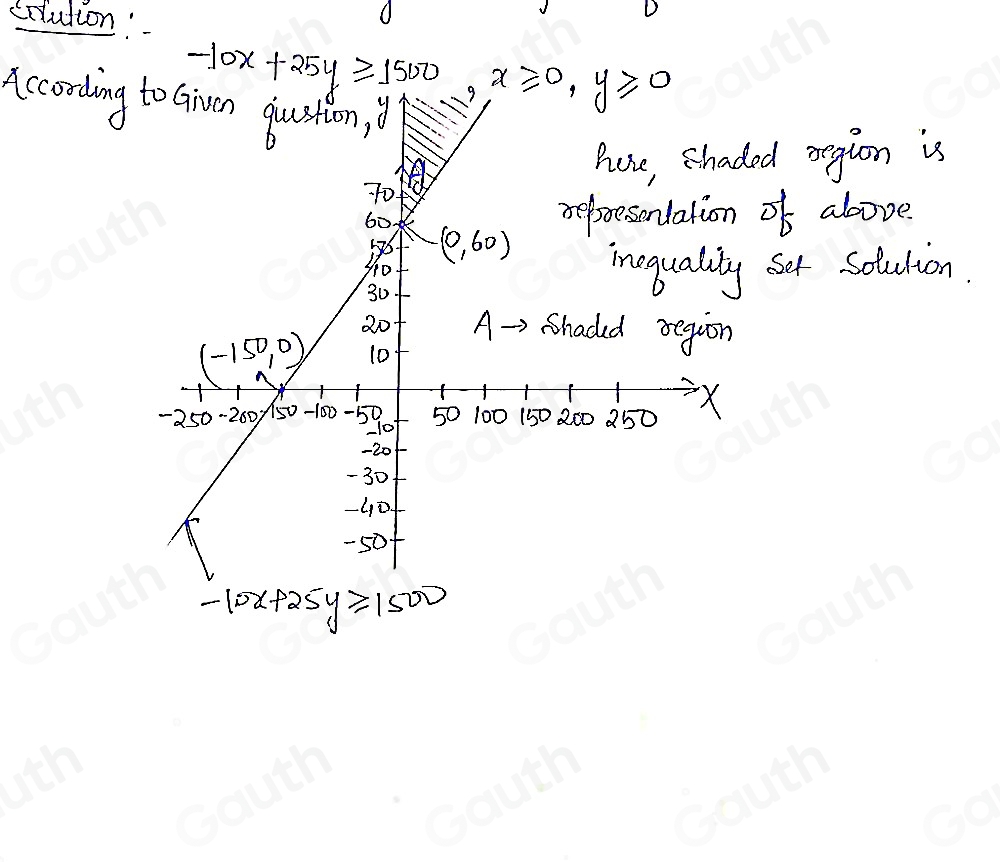 Solution :-
-10x + 25y ≥ 1500, x ≥ 0, y ≥ 0
According to Given qiustion,
y
here, shaded region is
representation of above
inequality set solution.
A
70
60
(0,60)
50
40
30
20
A → Shaded region
10
(-150,0)
X
-250 -200 -150 -100 -50 50 100 150 200 250
-10
-20
-30
-40
-50
-10x+25y ≥ 1500
Gauth